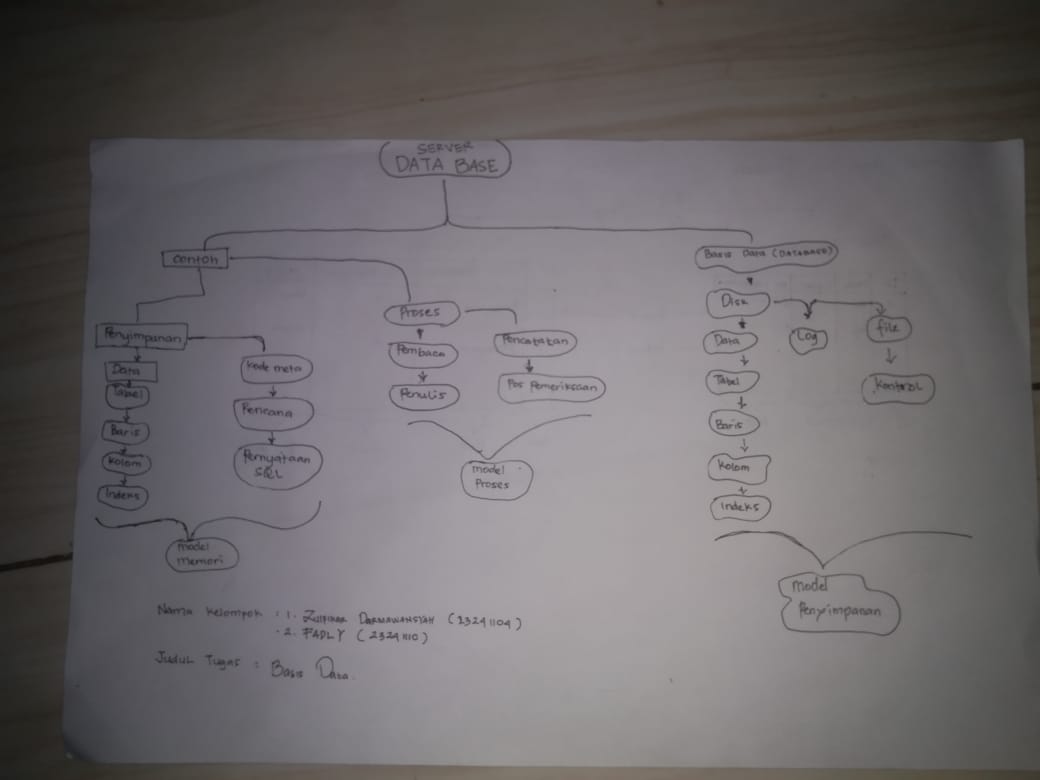 SERVER
DATA BASE
Contoh
Penyimpanan
Data
Tabel
Baris
Kolom
Indeks
Kode meta
Pencana
Pernyataan
SQL
model
memori
Proses
Pembaca
Penulis
Pencatatan
Pos Pemeriksaan
model
Proses
Basis Data (DATABASE)
Disk
Data
Tabel
Baris
Kolom
Indeks
Log
file
Kontrol
model
Penyimpanan
Nama Kelompok : 1. Zulfikar DARMAWANSYAH (23241104)
2. FADLY (23241110)
Judul Tugas : Basis Data.